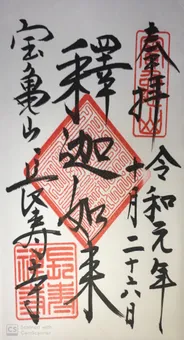 奉拝
令和元年
十月二十六日
釋迦如来
宝亀山 長寿寺
CS
Scanned with
CamScanner